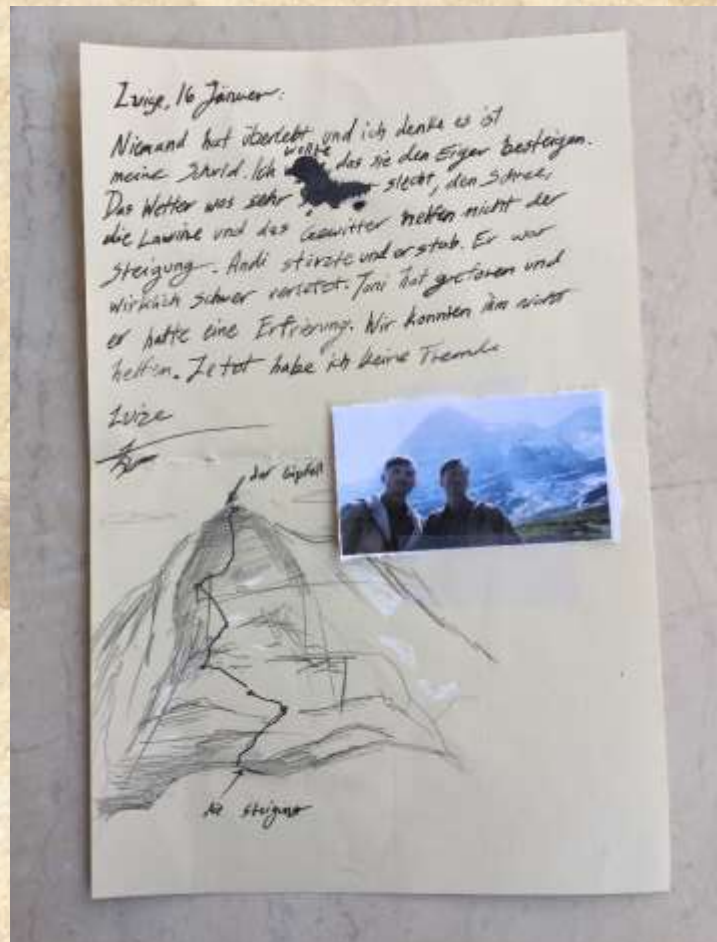 Luize, 16 Januer:
Niemand hat überlebt und ich denke es ist
meine Schuld. Ich wollte das sie den Eiger besteigen.
Das Wetter was sehr slecht, den Schnee,
die Lawine und das Gewitter helfen nicht der
Steigung. Andi stürzte und er stab. Er war
wirklich schwer verletzt. Toni hat gefroren und
er hatte eine Erfrierung. Wir konnten ihm nicht
helfen. Jetzt habe ich keine Freunde
Luize
der Gipfell
die Steigung